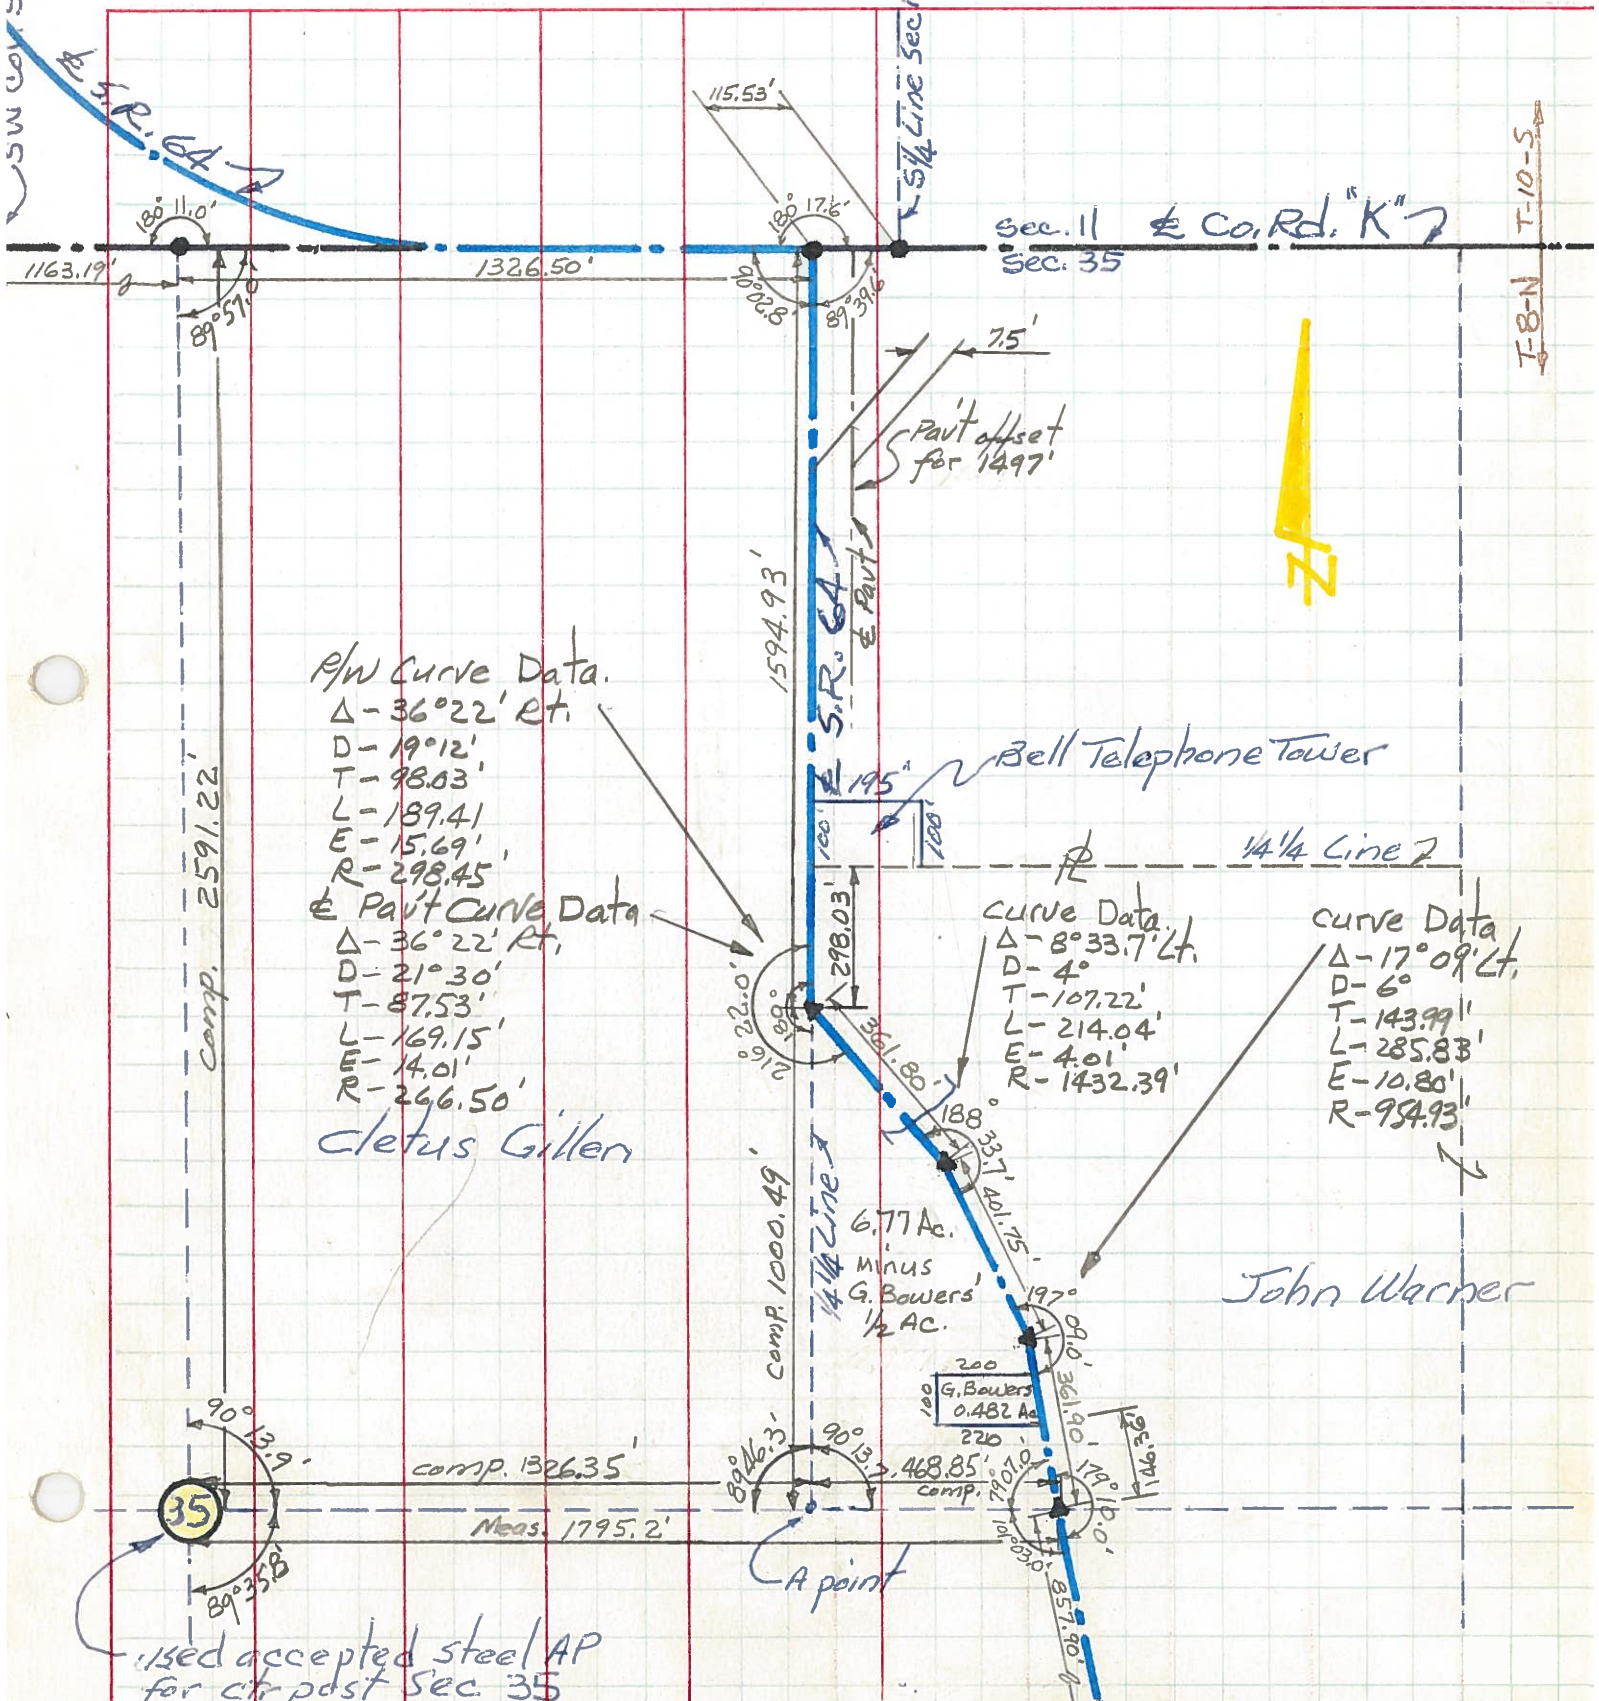 SW Cor. S
₵ S.R. 64
115.53'
S¼ Line Sec.
T-10-S
T-8-N
180° 11.0'
180° 17.6'
sec. 11 ₵ Co. Rd. "K"
Sec. 35
1163.19'
1326.50'
89°57.0'
90°02.8'
89°39.6'
7.5'
Pav't offset
for 1497'
1594.93'
₵ S.R. 64
₵ Pav't
N
R/W Curve Data.
Δ - 36°22' Rt.
D - 19°12'
T - 98.03'
L - 189.41
E - 15.69'
R - 298.45'
₵ Pav't Curve Data
Δ - 36°22' Rt.
D - 21°30'
T - 87.53'
L - 169.15'
E - 14.01'
R - 266.50'
Cletus Gillen
comp. 2591.22'
Bell Telephone Tower
195'
100'
100'
PL
¼ ¼ Line
298.03'
216° 22.0'
curve Data.
Δ - 8°33.7' Lt.
D - 4°
T - 107.22'
L - 214.04'
E - 4.01'
R - 1432.39'
curve Data
Δ - 17°09' Lt.
D - 6°
T - 143.99'
L - 285.83'
E - 10.80'
R - 954.93'
361.80'
188° 33.7'
401.75'
comp. 1000.49'
¼ ¼ Line
6.77 Ac.
minus
G. Bowers'
½ Ac.
John Warner
197° 09.0'
200
100
G. Bowers
0.482 Ac
220
361.90'
146.36'
90° 13.9'
comp. 1326.35'
89°46.3'
90° 13.
468.85'
comp.
79°07.0'
179° 10.0'
101°03.0'
35
Meas. 1795.2'
A point
89°35.8'
857.90'
used accepted steel AP
for ctr post Sec. 35